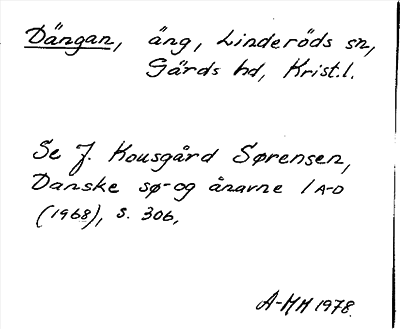 Dängan, äng, Linderöds sn,
Gärds hd, Krist.l.
Se J. Kousgård Sørensen,
Danske sø- og ånavne 1 A-D
(1968), s. 306,
A-MM 1978.